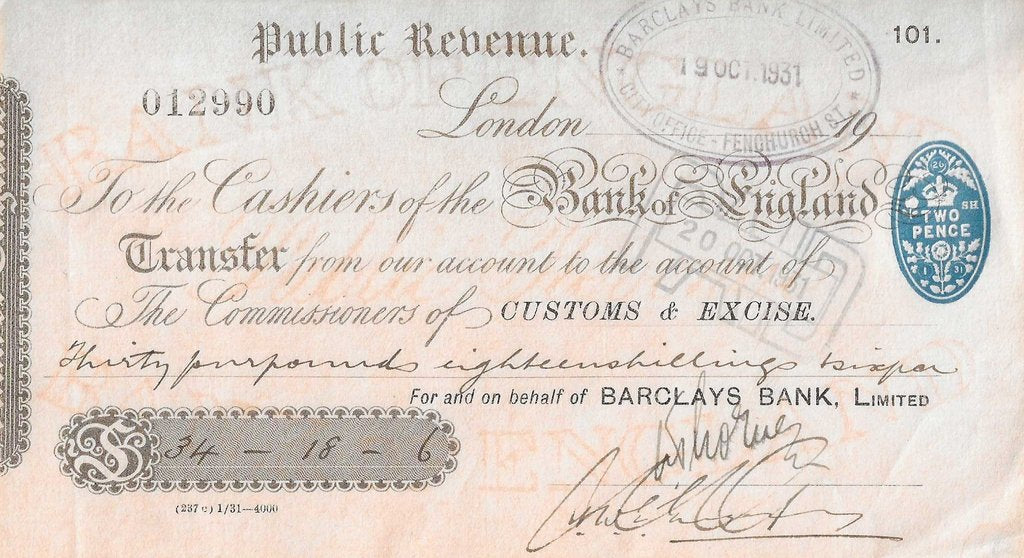 Public Revenue.
101.
BARCLAYS BANK LIMITED
19 OCT. 1931
CITY OFFICE - FENCHURCH ST.
012990
London 19
To the Cashiers of the Bank of England
20 OCT 1931
TWO PENCE
SH
26
1 31
Transfer from our account to the account of
The Commissioners of CUSTOMS & EXCISE.
Thirty four pounds eighteen shillings & six
For and on behalf of BARCLAYS BANK, LIMITED
£ 34 - 18 - 6
(237 c) 1/31—4000
BANK OF ENGLAND